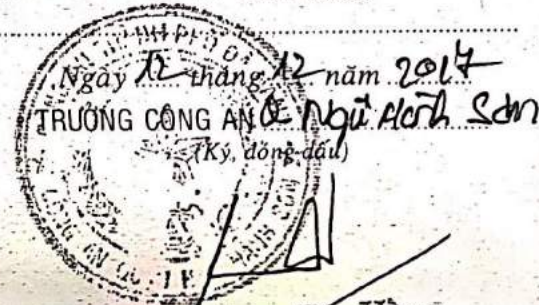 Ngày 12 tháng 12 năm 2017
TRƯỞNG CÔNG AN Q Ngũ Hành Sơn
(Ký, đóng dấu)